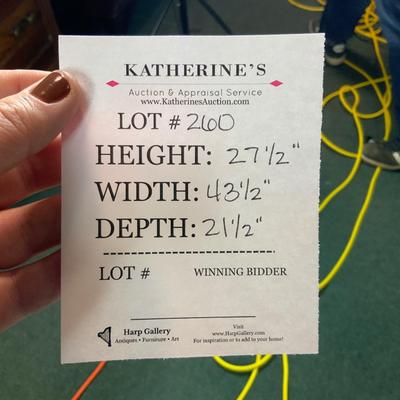 KATHERINE'S
Auction & Appraisal Service
www.KatherinesAuction.com
LOT # 260
HEIGHT: 27 1/2"
WIDTH: 43 1/2"
DEPTH: 21 1/2"
LOT # WINNING BIDDER
Harp Gallery
Antiques • Furniture • Art
Visit
www.HarpGallery.com
For inspiration or to add to your home!